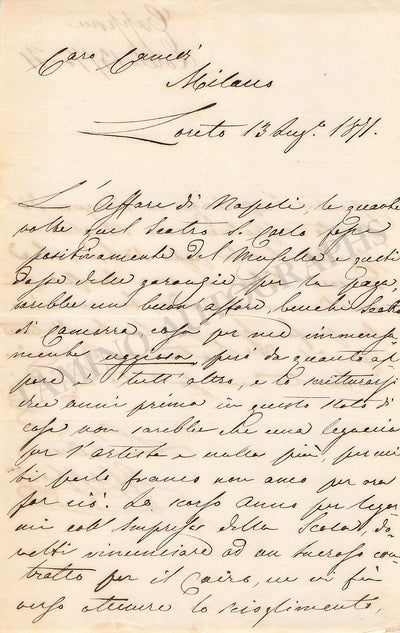 Caro Canedi
Milano
Loreto 13 Lug.o 1871.
L'Affare di Napoli, te quante
volte quel Teatro S. Carlo fosse
positivamente del Musella e questi
dasse delle garanzie per la paga,
sarebbe un buon affare, benche Teatro
di camorra, cosa per me immensa
mente uggiosa, però da quanto ap
pare è tutt'altro, e lo scritturarsi
anni prima in questo stato di
cose non sarebbe che una legaccia
per l'artista e nulla più, per cui
vi parlo franco non amo per ora
far ciò. Lo scorso Anno per legar
mi coll'Impresa della Scala, do
vetti rinunciare ad un lucroso con
tratto per il Cairo, ne vi fu
verso ottenere lo scioglimento,
TAMINO AUTOGRAPHS